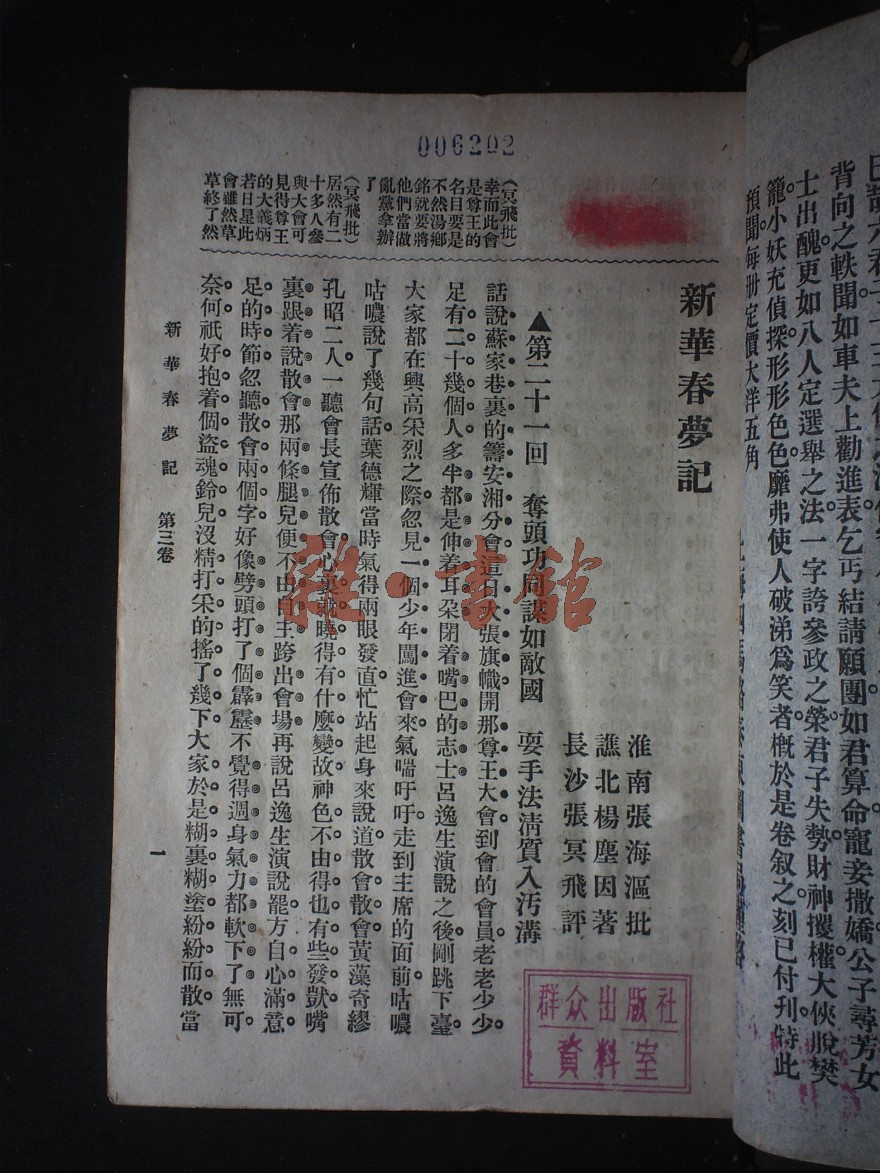 巴歌六君子十三太保
背向之軼聞如車夫上勸進表乞丐結請願團如君算命寵妾撒嬌公子尋芳女
士出醜更如八人定選舉之法一字誇參政之榮君子失勢財神攫權大俠脫樊
籠小妖充偵探形形色色靡弗使人破涕爲笑者概於是卷叙之刻已付刋特此
預聞每册定價大洋五角
006202
新華春夢記
淮南張海漚批
譙北楊塵因著
長沙張冥飛評
▲第二十一回　奪頭功同謀如敵國　耍手法淸質入汚溝
話說蘇家巷裏的籌安湘分會這日大張旗幟開那尊王大會到會的會員老老少少
足有二十幾個人多半都是伸着耳朶閉着嘴巴的志士呂逸生演說之後剛跳下臺
大家都在興高采烈之際忽見一個少年闖進會來氣喘吁吁走到主席的面前咕噥
咕噥說了幾句話葉德輝當時氣得兩眼發直忙站起身來說道散會散會黃藻奇繆
孔昭二人一聽會長宣佈散會心裏就曉得有什麼變故神色不由得也有些發獃嘴
裏跟着說散會那兩條腿兒便不由自主跨出會場再說呂逸生演說罷方自心滿意
足的時節忽聽散會兩個字好像劈頭打了個霹靂不覺得週身氣力都軟下了無可
奈何祇好抱着個盜魂鈴兒沒精打采的搖了幾下大家於是糊裏糊塗紛紛而散當
（冥飛批）
幸而此會
是尊王的
名目要是
不然湯鄉
銘就要將
他們當做
亂黨拿辦
了
（冥飛批）
居然有二
十多人參
與大會可
見得尊王
的大義炳
若日星此
會雖然草
草終了然
新華春夢記　第三卷
一
群众出版社
資料室
雜·書館